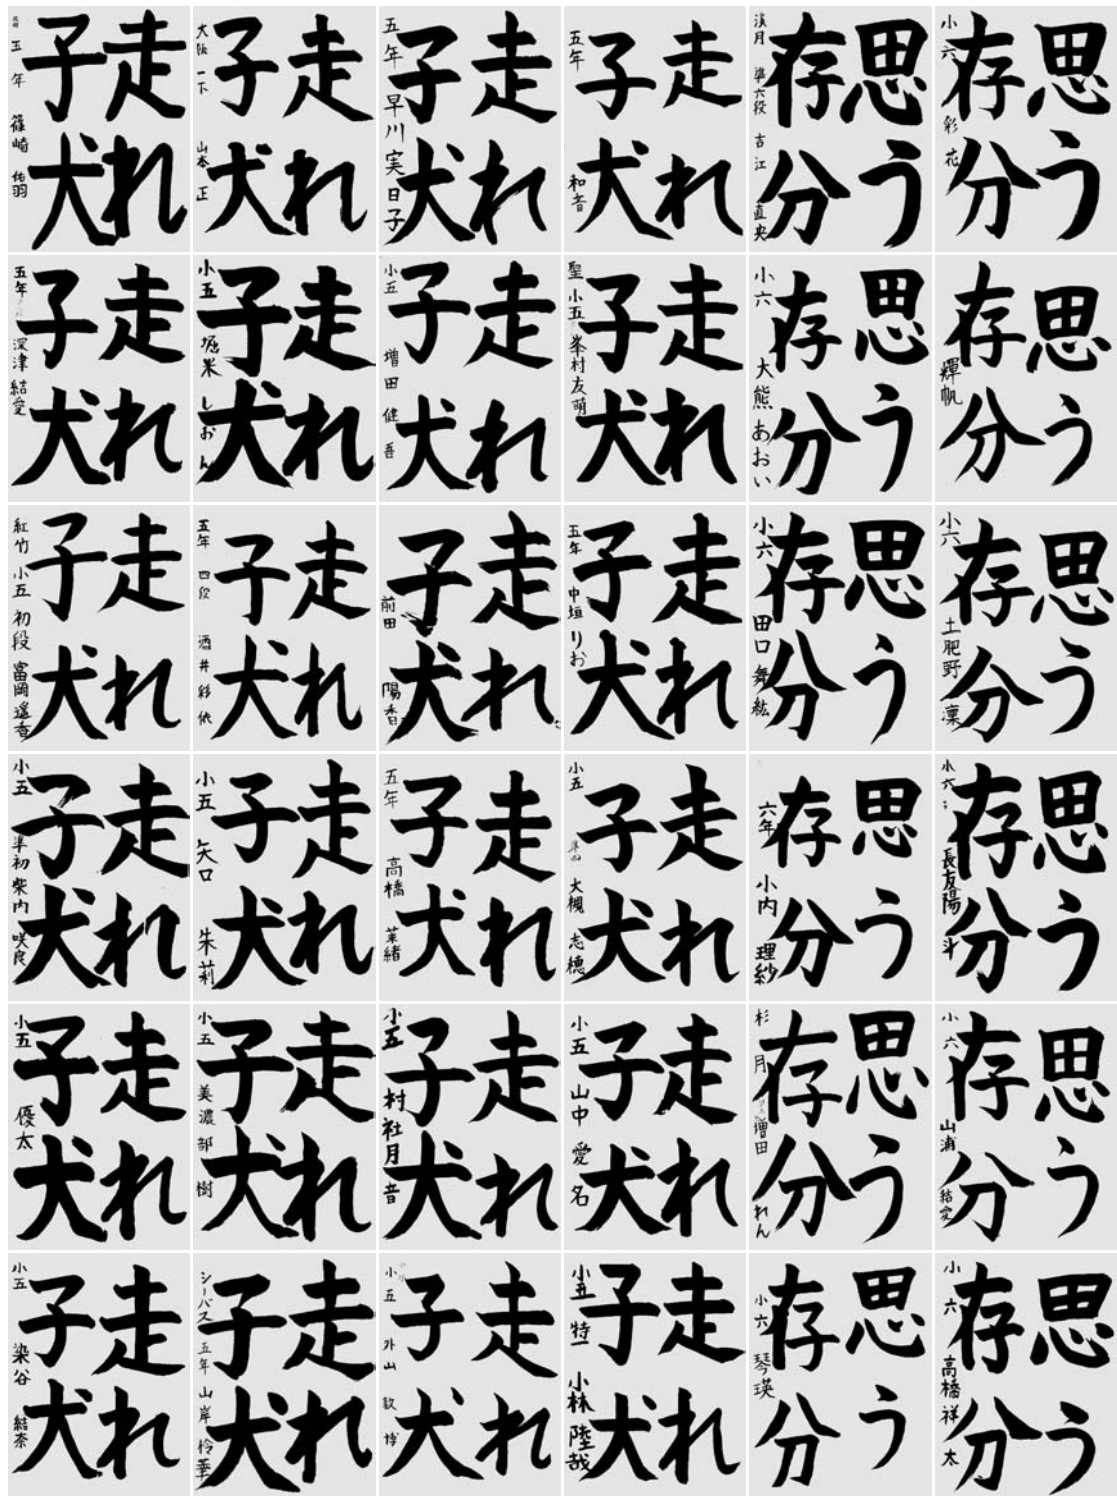 走れ
子犬
五年
篠崎
走れ
子犬
大阪 一下
山本 正
走れ
子犬
五年 早川実日子
走れ
子犬
五年
和音
思う
存分
渓月 準六段 古江 直央
思う
存分
小六
彩花
走れ
子犬
五年
深津 結愛
走れ
子犬
小五 堀米 しおん
走れ
子犬
小五
増田 健吾
走れ
子犬
聖 小五 峯村友萌
思う
存分
小六
大熊 あおい
思う
存分
輝帆
走れ
子犬
紅竹 小五 初段 富岡遥香
走れ
子犬
五年 四段
酒井彩依
走れ
子犬
前田 陽香
走れ
子犬
五年 中垣 りお
思う
存分
小六
田口 舞紘
思う
存分
小六
土肥野 凜
走れ
子犬
小五 準初 柴内 咲良
走れ
子犬
小五 矢口 朱莉
走れ
子犬
五年 高橋 茉緒
走れ
子犬
小五
大槻 志穂
思う
存分
六年 小内 理紗
思う
存分
小六
長友陽斗
走れ
子犬
小五
優太
走れ
子犬
小五 美濃部 樹
走れ
子犬
小五 村社月音
走れ
子犬
小五 山中 愛名
思う
存分
杉月
増田 れん
思う
存分
小六
山浦 結愛
走れ
子犬
小五 染谷 結奈
走れ
子犬
シーバス 五年 山岸 怜華
走れ
子犬
小五 外山
走れ
子犬
小五 特一 小林 陸哉
思う
存分
小六
琴瑛
思う
存分
小六
高橋 祥太